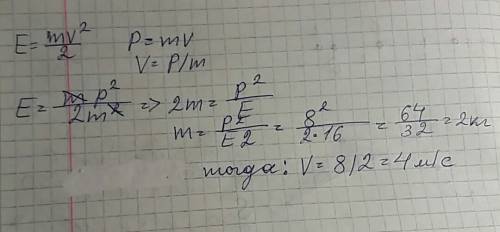 E = mv²/2   P = mv
V = P/m
E = m p²/2m² => 2m = p²/E
m = p²/E2 = 8²/2·16 = 64/32 = 2кг
тогда: V = 8/2 = 4 м/с